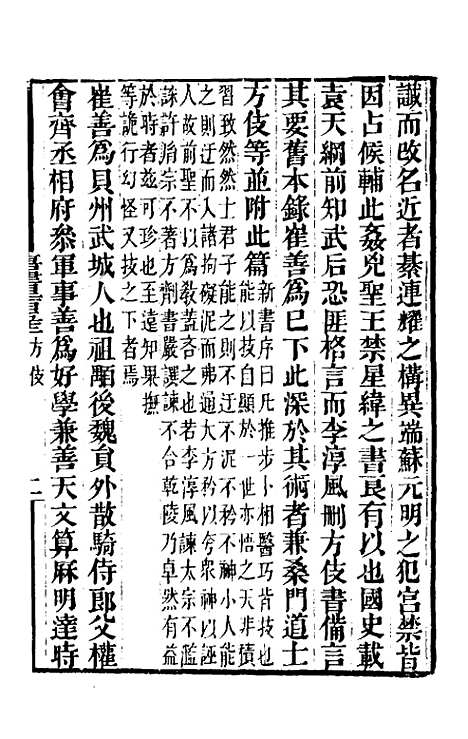 讖而改名近者綦連耀之構異端蘇元明之犯宮禁皆
因占候輔此姦兇聖王禁星緯之書良有以也國史載
袁天綱前知武后恐匪格言而李淳風刪方伎書備言
其要舊本錄崔善為已下此深於其術者兼桑門道士
方伎等並附此篇
新書序曰凡推步卜相醫巧皆技也
能以技自顯於一世亦悟之天非積
習致然然士君子能之則不迂不泥不矜不神小人能
之則迂而入諸拘礙泥而弗通大方矜以夸眾神以誣
人故前聖不以為教蓋吝之也若李淳風諫太宗不濫
誅許胤宗不著方劑書嚴譔諫不合乾陵乃卓然有益
於時者玆可珍也至遠知果撫
等詭行幻怪又技之下者焉
崔善為貝州武城人也祖顒後魏員外散騎侍郎父權
會齊丞相府叅軍事善為好學兼善天文算厤明達時
方伎
二